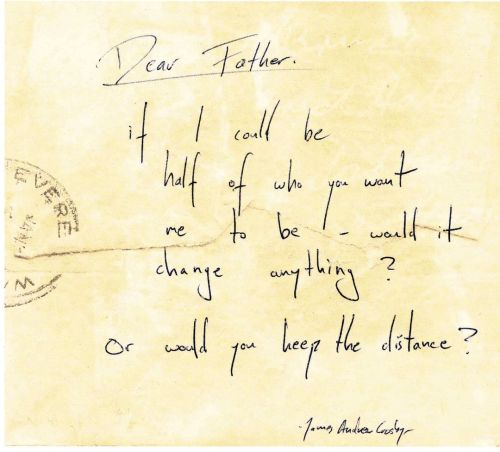 Dear Father.
if I could be
half of who you want
me to be - would it
change anything?
Or would you keep the distance?
- James Andrew Crosby
EVERE